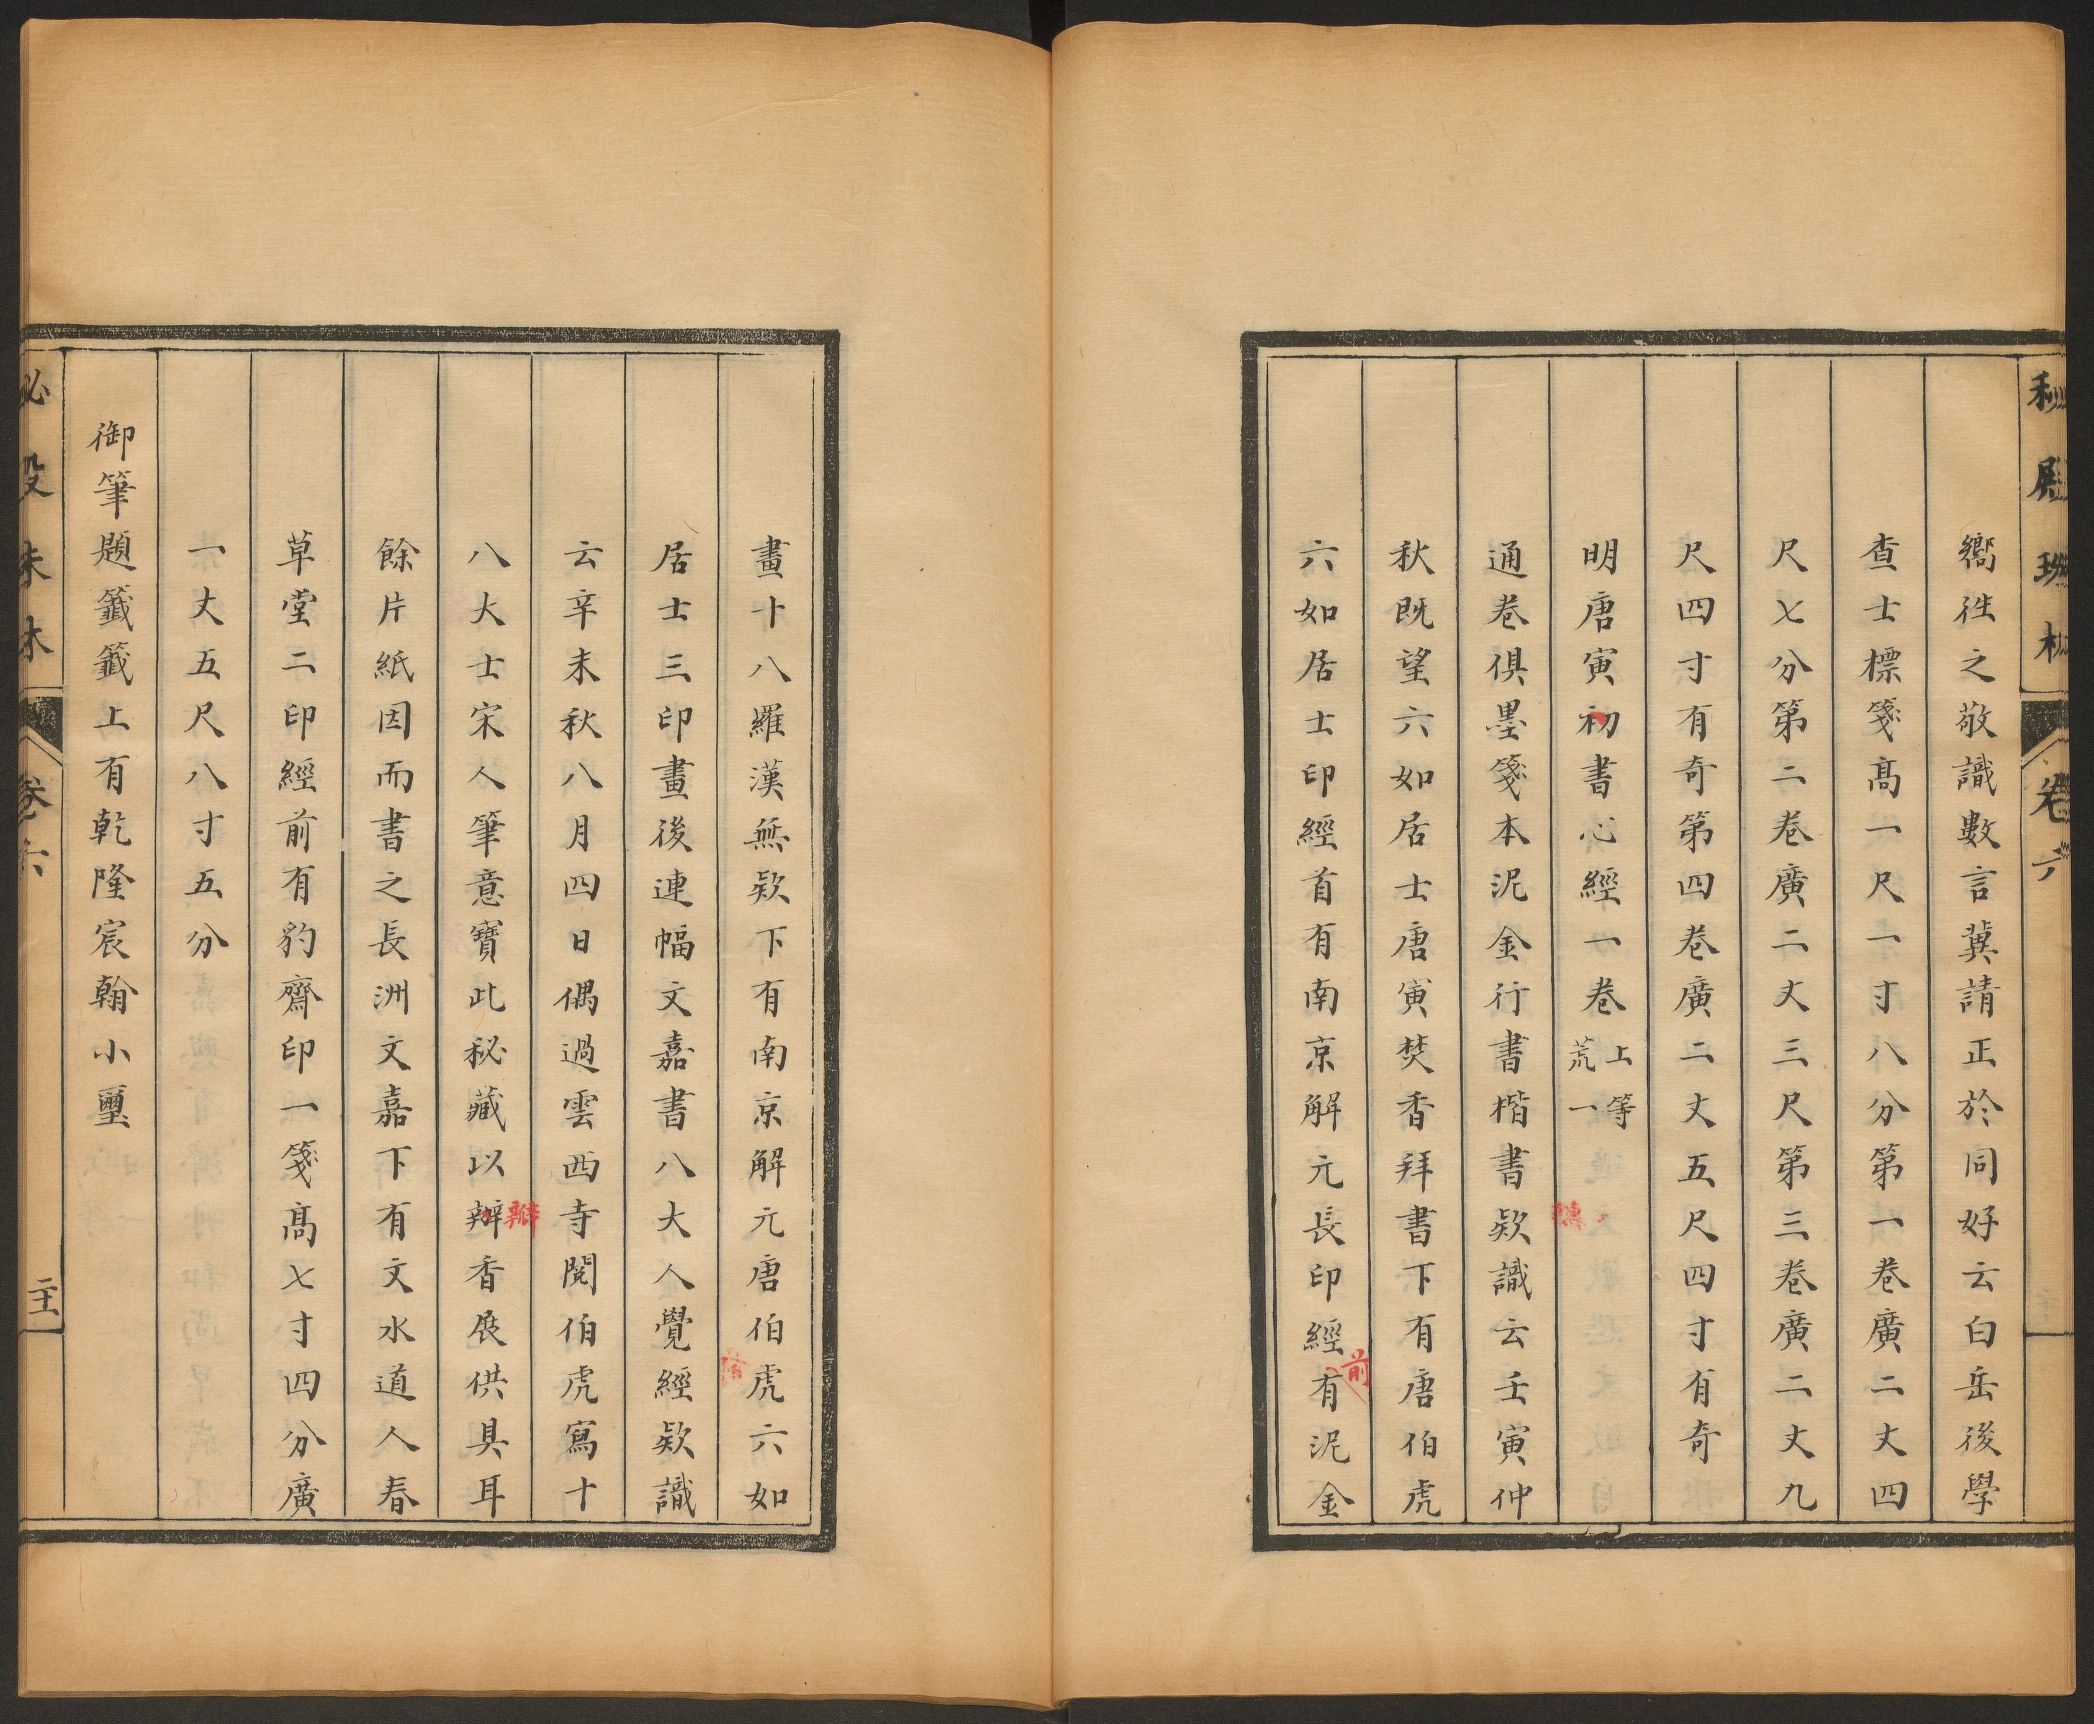 秘殿珠林 卷六
嚮往之敬識數言冀請正於同好云白岳後學
查士標箋高一尺一寸八分第一卷廣二丈四
尺七分第二卷廣二丈三尺第三卷廣二丈九
尺四寸有奇第四卷廣二丈五尺四寸有奇
明唐寅初書心經一卷上等荒一
通卷俱墨箋本泥金行書楷書欵識云壬寅仲
秋既望六如居士唐寅焚香拜書下有唐伯虎
六如居士印經首有南京解元長印經有泥金
前
畫十八羅漢無欵下有南京解元唐伯虎六如
居士三印畫後連幅文嘉書八大人覺經欵識
云辛未秋八月四日偶過雲西寺閱伯虎寫十
八大士宋人筆意寶此秘藏以辦香展供具耳
瓣
餘片紙因而書之長洲文嘉下有文水道人春
草堂二印經前有豹齋印一箋高七寸四分廣
一丈五尺八寸五分
御筆題籤籤上有乾隆宸翰小璽
秘殿珠林 卷六 二十一